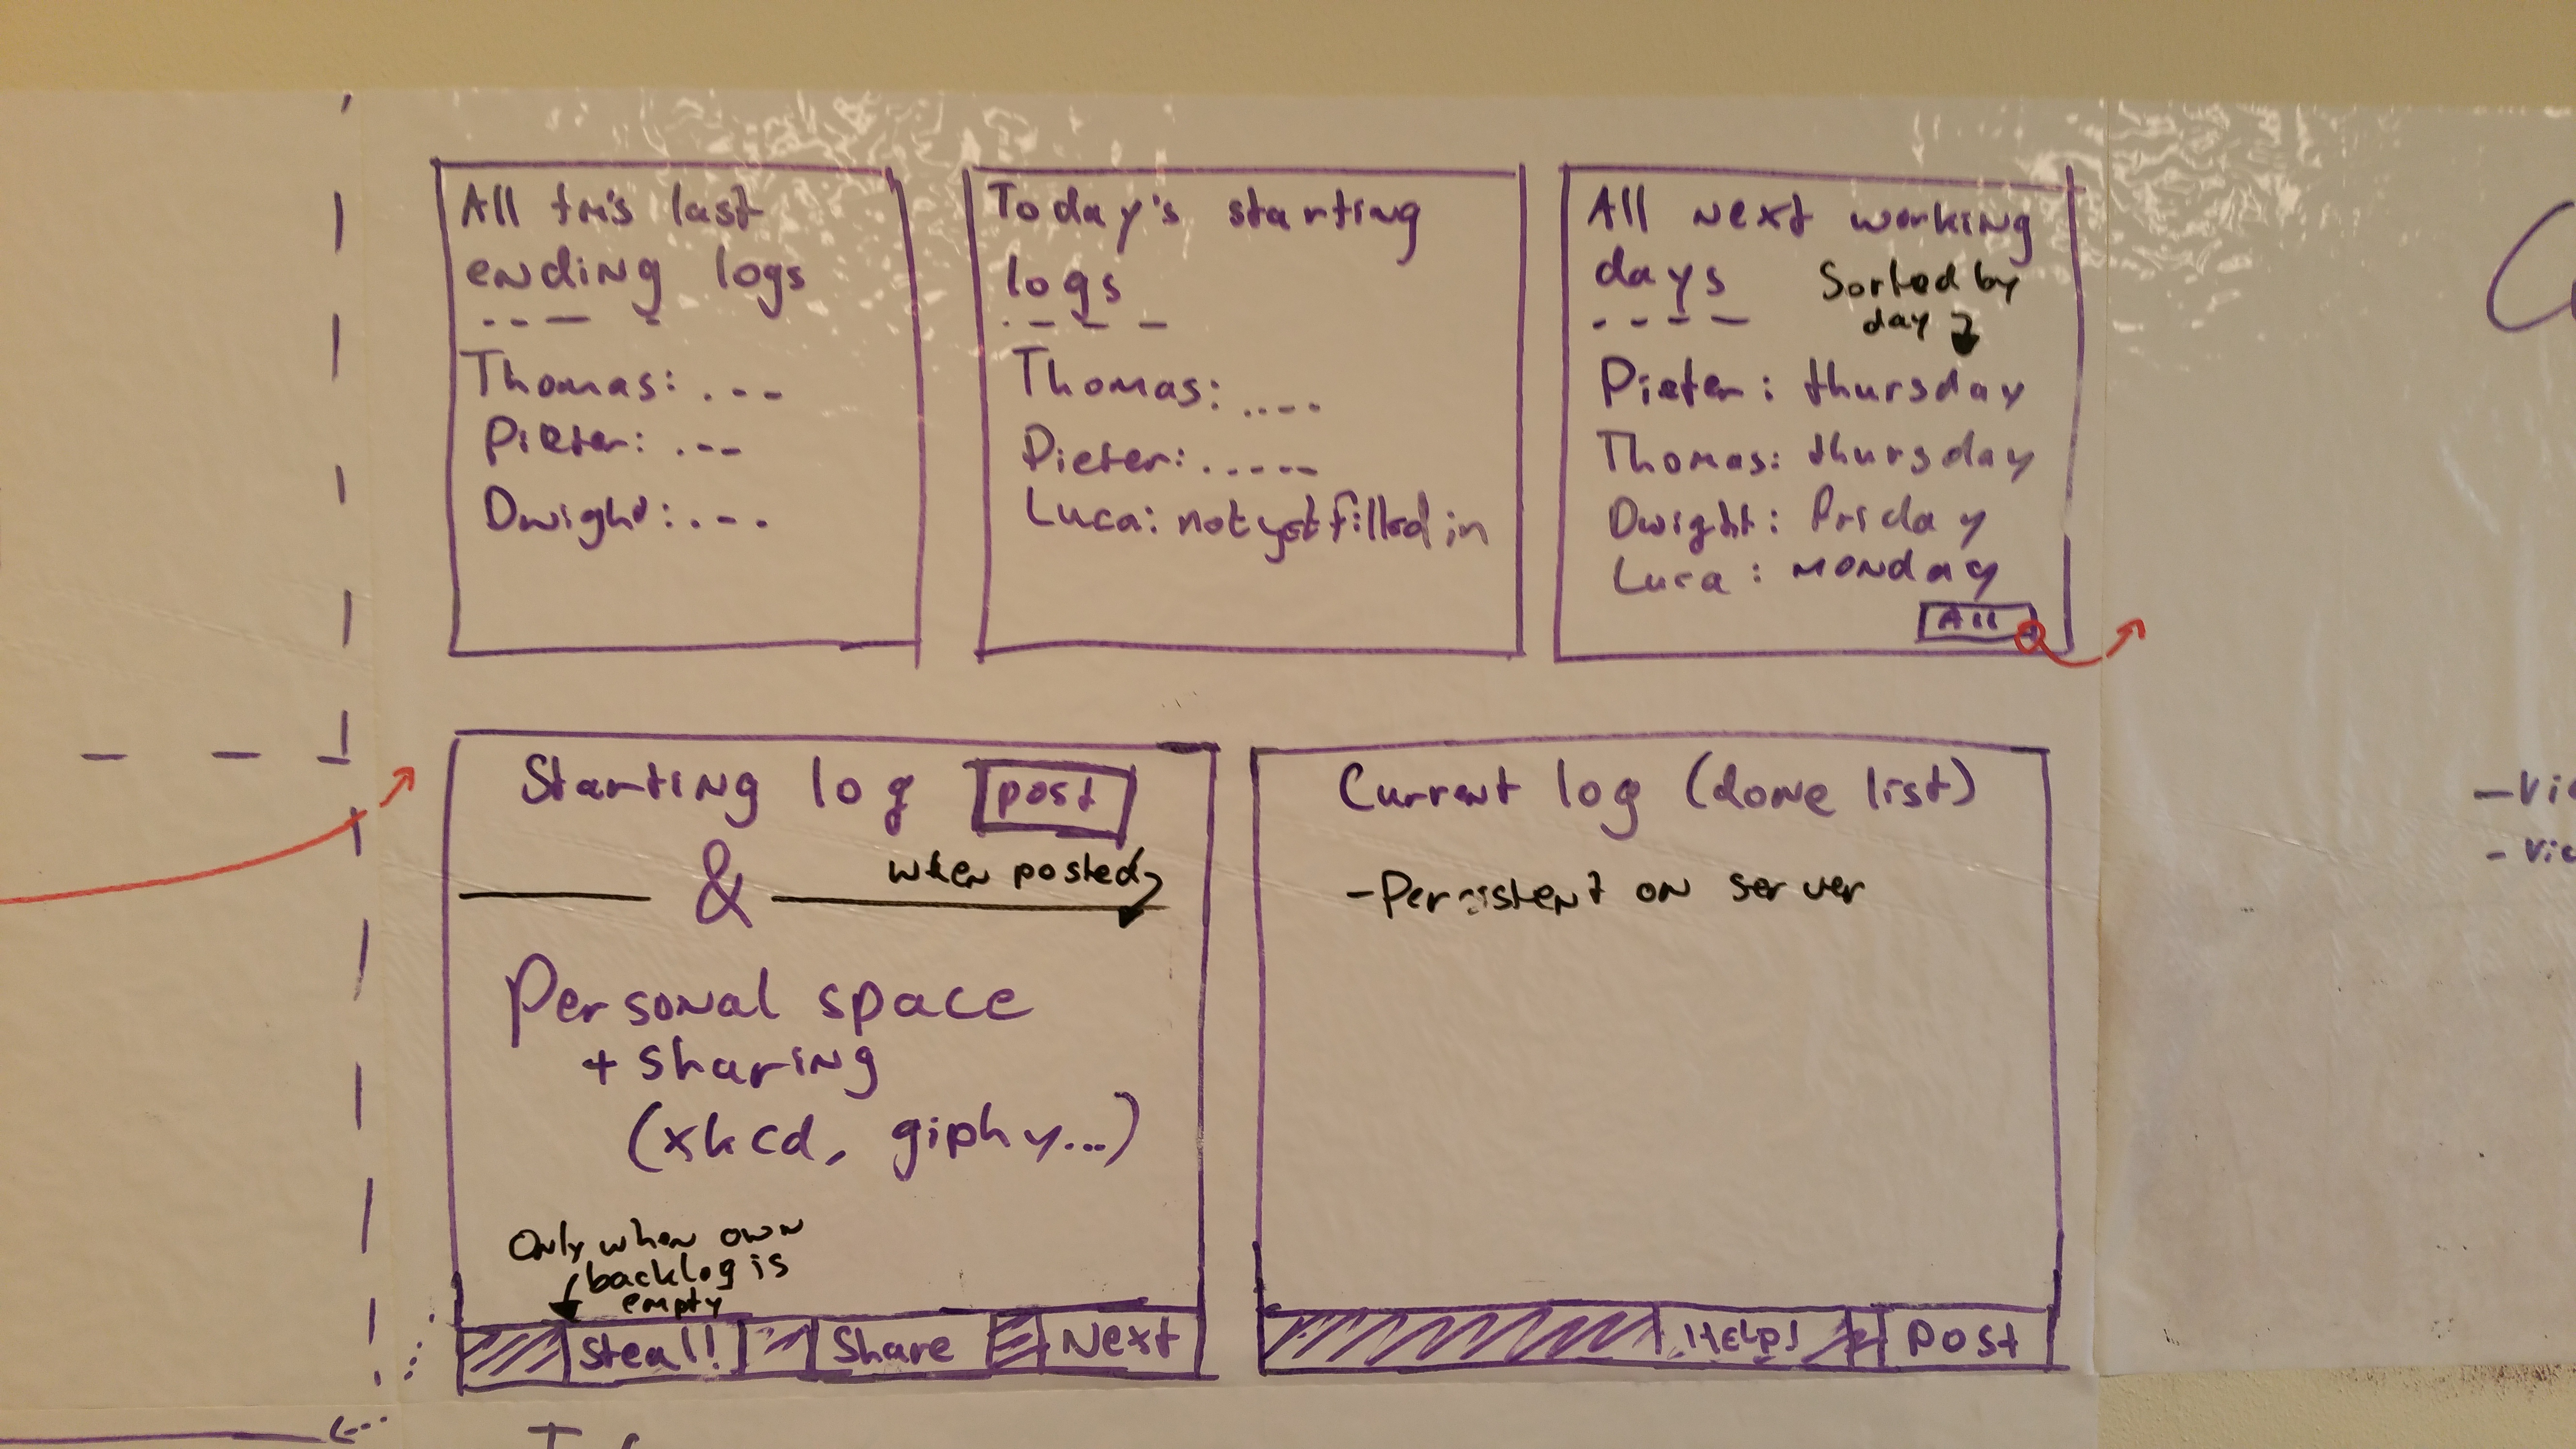 All tm's last
ending logs
Thomas: . - -
Pieter: . - -
Dwight: . - .
Today's starting
logs
Thomas: . . - -
Pieter: . . - - -
Luca: not yet filled in
All next working
days
Sorted by
day
Pieter: thursday
Thomas: thursday
Dwight: Friday
Luca: monday
All
Starting log post
&
when posted
Personal space
+ sharing
(xkcd, giphy...)
Only when own
backlog is
empty
Steal! Share Next
Current log (done list)
- Persistent on server
HELP! Post